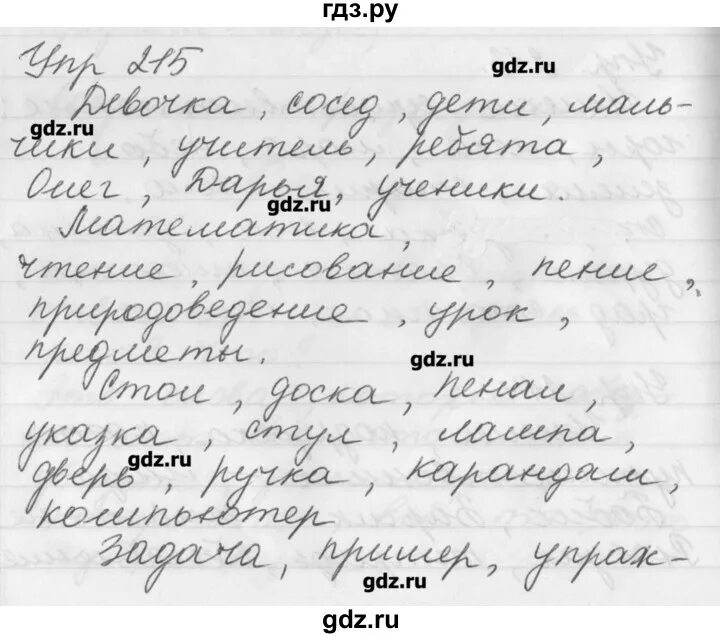 гдз.ру
Упр 215
gdz.ru
Девочка, сосед, дети, маль-
gdz.ru
чики, учитель, ребята,
Олег, Дарья, ученики.
gdz.ru
Математика,
чтение, рисование, пение,
природоведение, урок,
предметы.
gdz.ru
Стол, доска, пенал,
указка, стул, лампа,
gdz.ru
дверь, ручка, карандаш,
компьютер
Задача, пример, упраж-
gdz.ru
gdz.ru